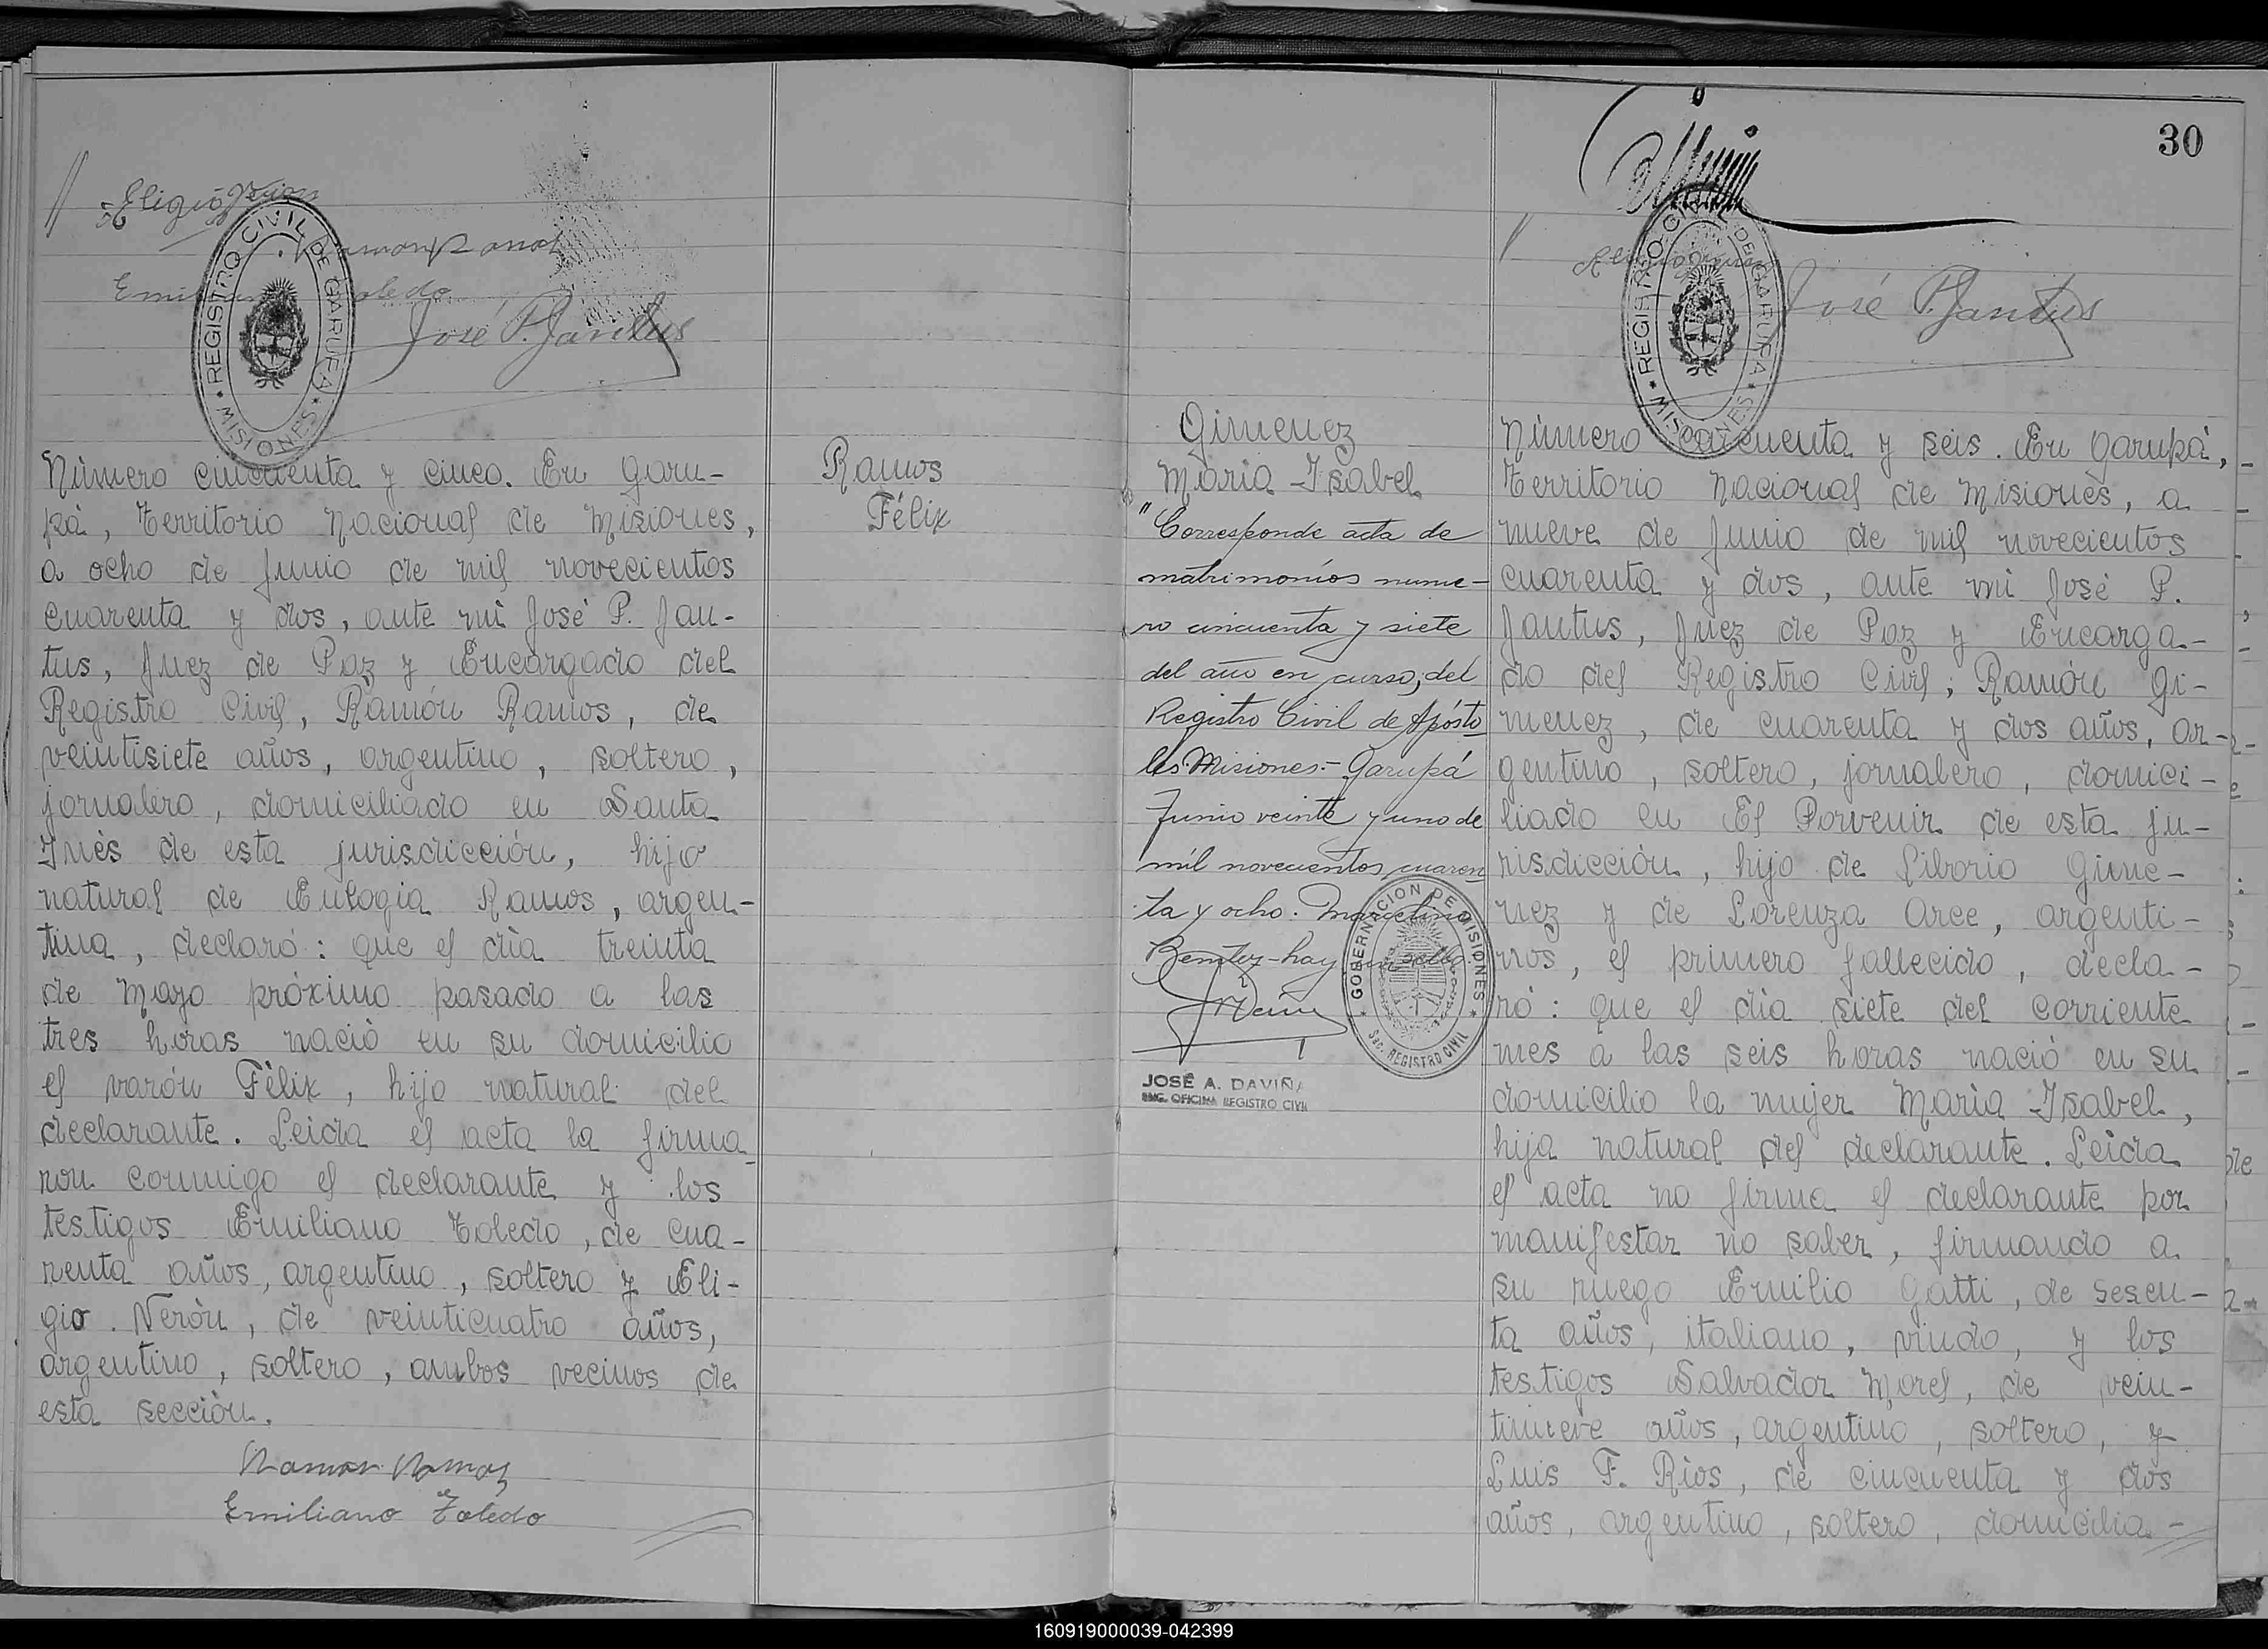 Eligio Nerón
Ramon Ramos
Emiliano Toledo
José P. Jantus
REGISTRO CIVIL DE GARUPA
* MISIONES *
Número cincuenta y cinco. En Garu-
pá, Territorio Nacional de Misiones,
a ocho de Junio de mil novecientos
cuarenta y dos, ante mi José P. Jan-
tus, Juez de Paz y Encargado del
Registro Civil, Ramón Ramos, de
veintisiete años, argentino, soltero,
jornalero, domiciliado en Santa
Inés de esta jurisdicción, hijo
natural de Eulogia Ramos, argen-
tina, declaró: que el día treinta
de Mayo próximo pasado a las
tres horas nació en su domicilio
el varón Félix, hijo natural del
declarante. Leida el acta la firma_
ron conmigo el declarante y los
testigos Emiliano Toledo, de cua-
renta años, argentino, soltero y Eli-
gio Nerón, de veinticuatro años,
argentino, soltero, ambos vecinos de
esta sección.
Ramon Ramos
Emiliano Toledo
Ramos
Félix
Gimenez
Maria Isabel
"Corresponde acta de
matrimonios nume-
ro cincuenta y siete
del año en curso, del
Registro Civil de Apósto
les Misiones.- Garupá
Junio veinte y uno de
mil novecientos cuaren
ta y ocho. Marcelino
Benítez - hay un sello.
GOBERNACION DE MISIONES
* Sec. REGISTRO CIVIL *
JOSÉ A. DAVIÑA
ENC. OFICINA REGISTRO CIVIL
30
José P. Jantus
REGISTRO CIVIL DE GARUPA
* MISIONES *
Número cincuenta y seis. En Garupá,
Territorio Nacional de Misiones, a
nueve de Junio de mil novecientos
cuarenta y dos, ante mi José P.
Jantus, Juez de Paz y Encarga-
do del Registro Civil; Ramón Gi-
menez, de cuarenta y dos años, ar-
gentino, soltero, jornalero, domici-
liado en El Porvenir de esta ju-
risdicción, hijo de Liborio Gime-
nez y de Lorenza Arce, argenti-
nos, el primero fallecido, decla-
ró: que el día siete del corriente
mes a las seis horas nació en su
domicilio la mujer Maria Isabel,
hija natural del declarante. Leida
el acta no firma el declarante por
manifestar no saber, firmando a
su ruego Emilio Gatti, de sesen-
ta años, italiano, viudo, y los
testigos Salvador Morel, de vein-
tinueve años, argentino, soltero, y
Luis F. Rios, de cincuenta y dos
años, argentino, soltero, domicilia-
160919000039-042399